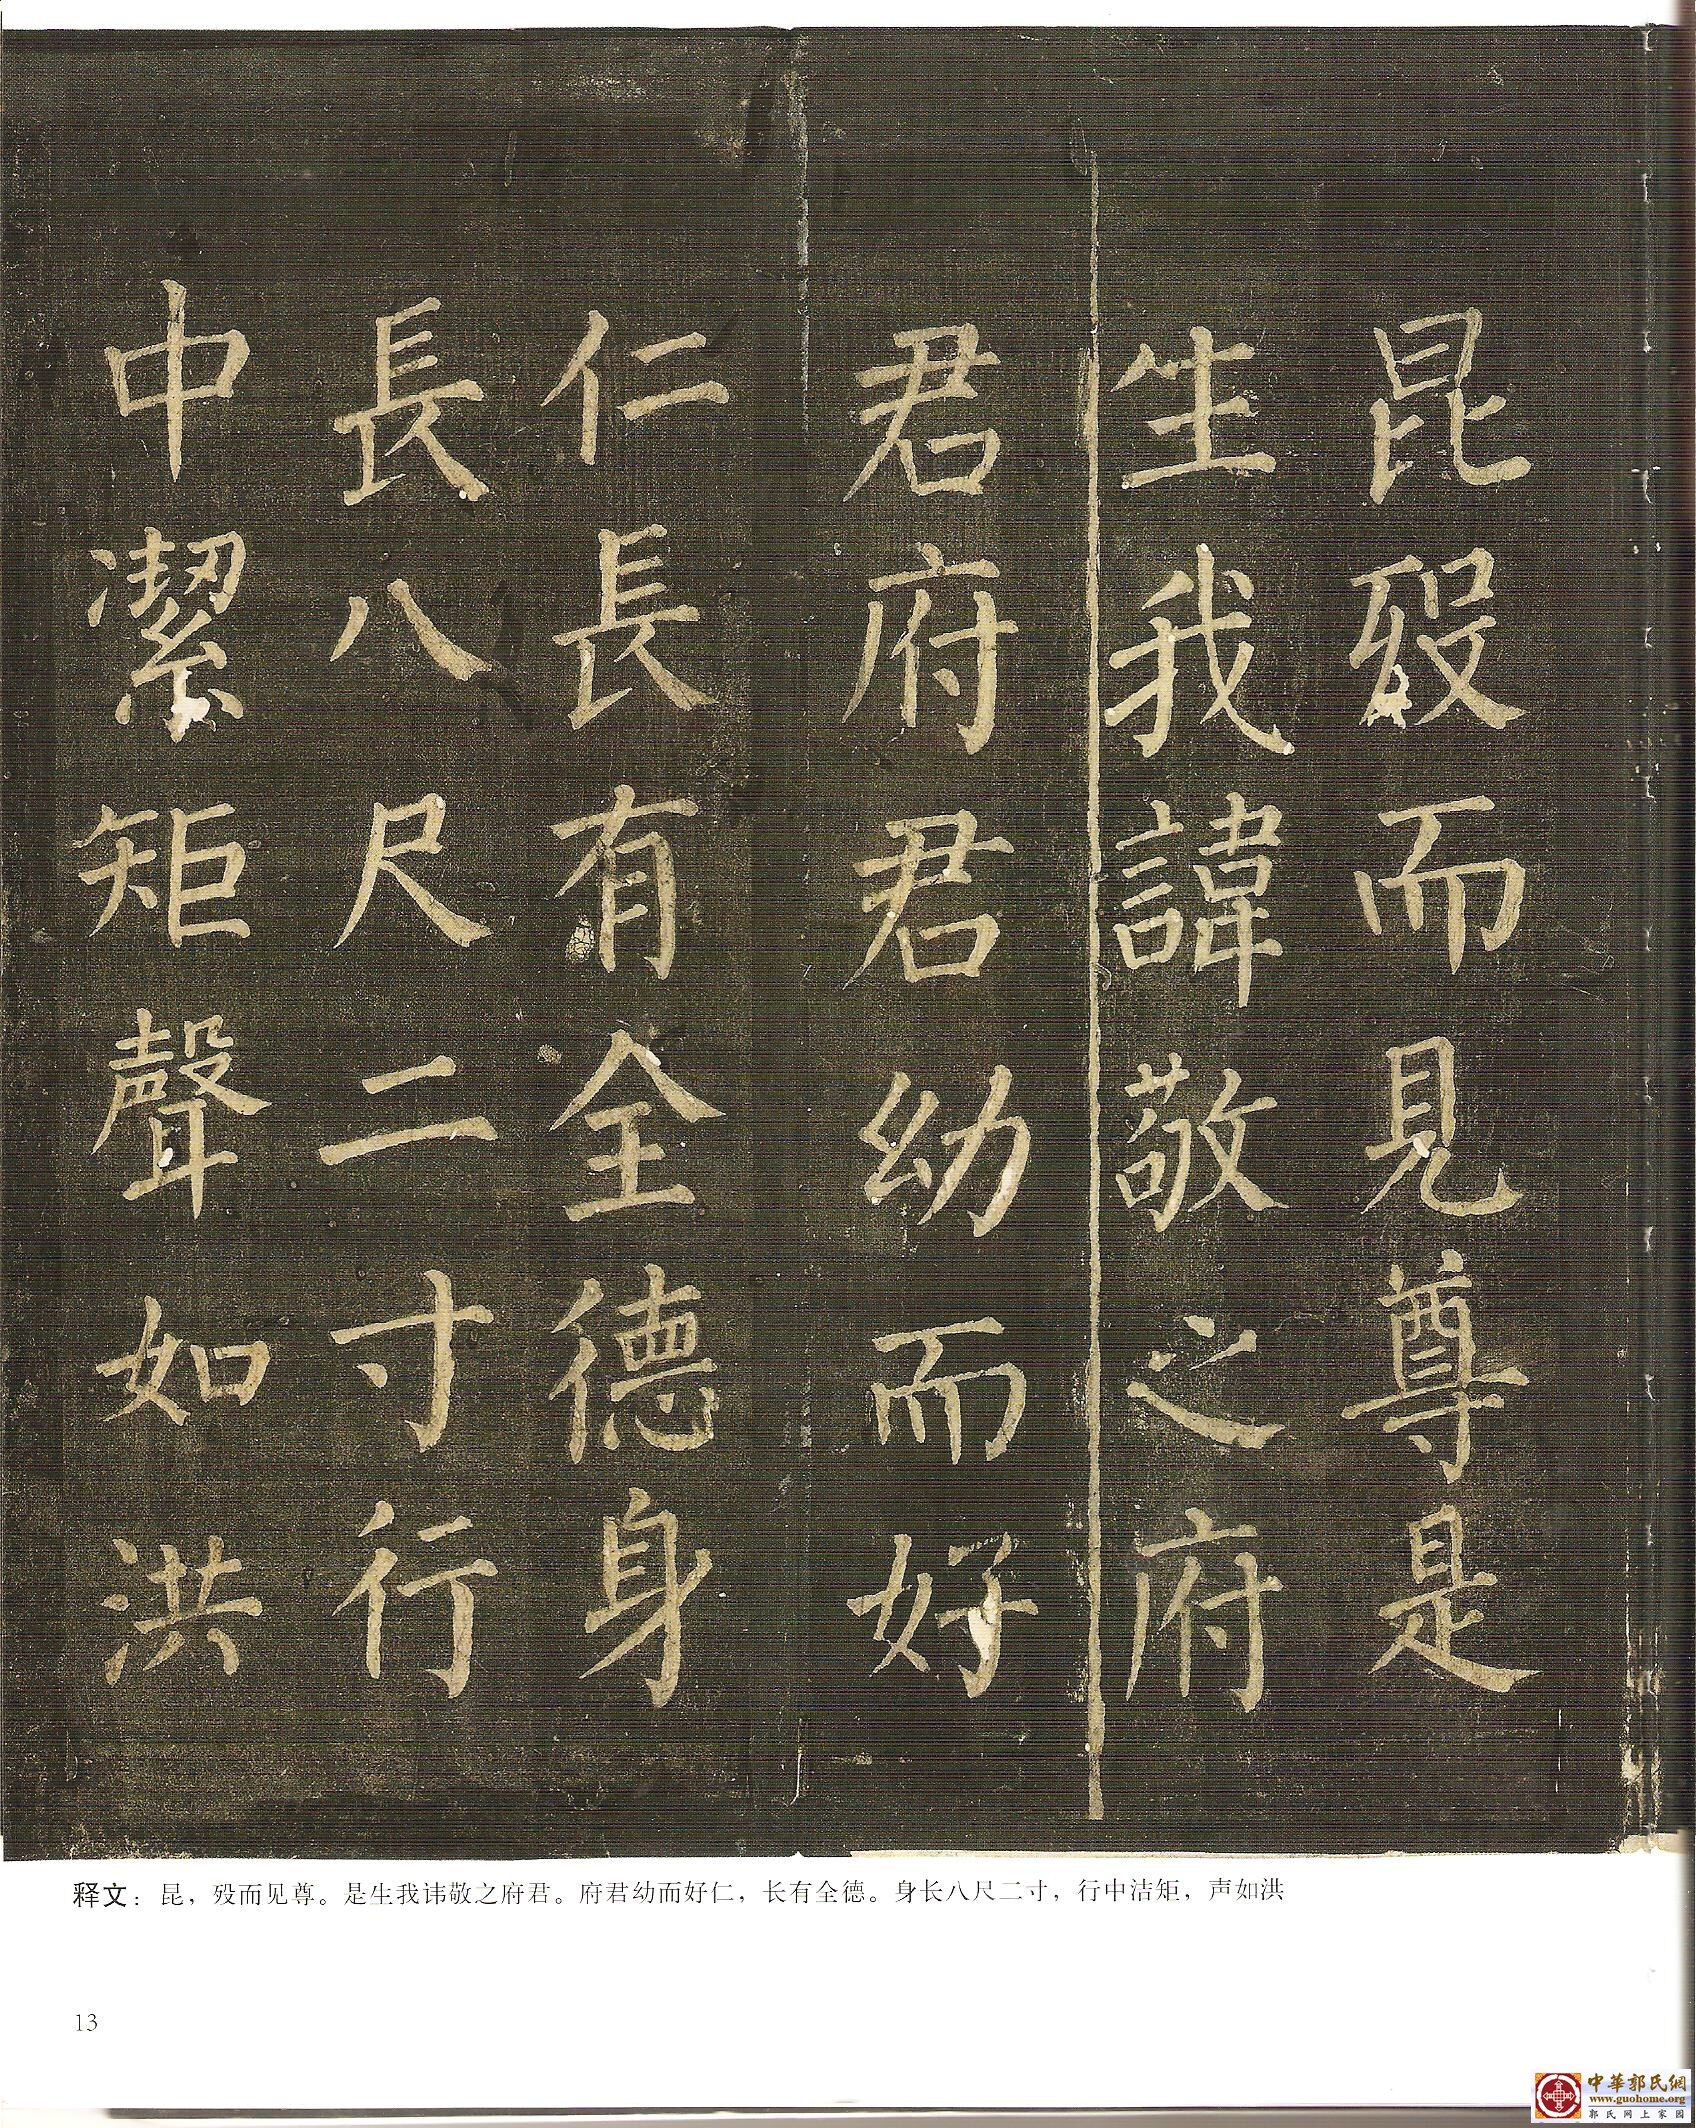 昆歿而見尊是
生我諱敬之府
君府君幼而好
仁長有全德身
長八尺二寸行
中潔矩聲如洪
释文：昆，殁而见尊。是生我讳敬之府君。府君幼而好仁，长有全德。身长八尺二寸，行中洁矩，声如洪
13
中華郭氏網
www.guohome.org
郭氏网上家园